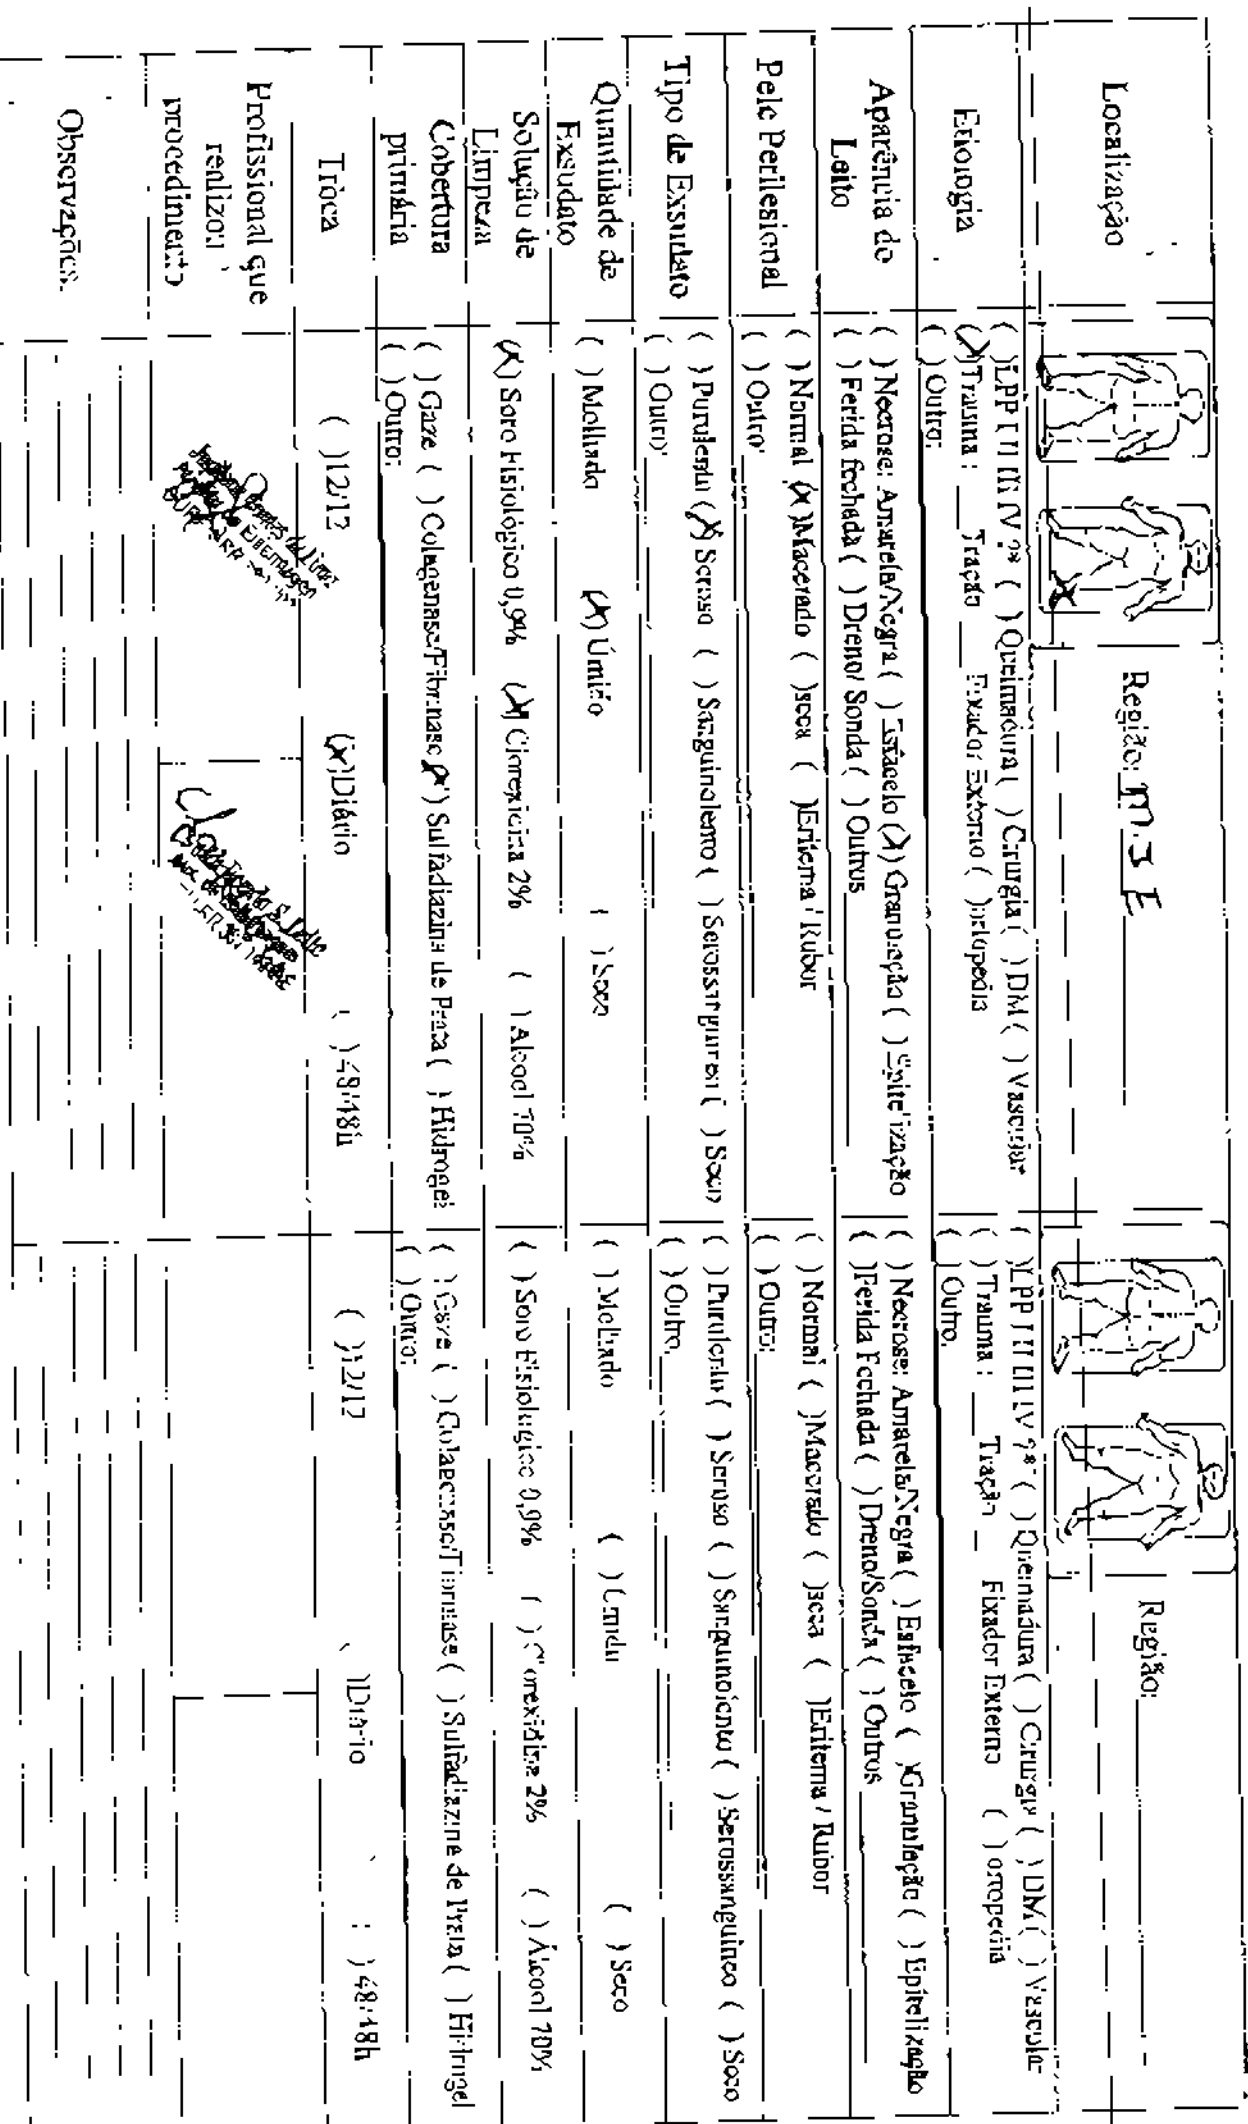 Localização
Região: M.I.E
Região:
Etiologia
( )LPP I II III IV ?* ( ) Queimadura ( ) Cirurgia ( ) DM ( ) Vascular
(X)Trauma : ___ Tração ___ Fixador Externo ( )ortopedia
( ) Outro:
( )LPP I II III IV ?* ( ) Queimadura ( ) Cirurgia ( ) DM ( ) Vascular
( ) Trauma : ___ Tração _ Fixador Externo ( ) ortopedia
( ) Outro.
Aparência do
Leito
( ) Necrose: Amarela/Negra ( ) Esfacelo (X) Granulação ( ) Epitelização
( ) Ferida fechada ( ) Dreno/ Sonda ( ) Outros
( ) Necrose: Amarela/Negra ( ) Esfacelo ( )Granulação ( ) Epitelização
( )Ferida Fechada ( ) Dreno/Sonda ( ) Outros
Pele Perilesional
( ) Normal (X)Macerado ( )seca ( )Eritema / Rubor
( ) Outro:
( ) Normal ( )Macerado ( )seca ( )Eritema / Rubor
( ) Outro:
Tipo de Exsudato
( ) Purulento (X) Seroso ( ) Sanguinolento ( ) Serossanguineo ( ) Seco
( ) Outro:
( ) Purulento ( ) Seroso ( ) Sanguinolento ( ) Serossanguineo ( ) Seco
( ) Outro.
Quantidade de
Exsudato
( ) Molhado (X) Úmido ( ) Seco
( ) Molhado ( ) Úmido ( ) Seco
Solução de
Limpeza
(X) Soro Fisiológico 0,9% (X) Clorexidina 2% ( ) Alcool 70%
( ) Soro Fisiologico 0,9% ( ) Clorexidina 2% ( ) Álcool 70%
Cobertura
primária
( ) Gaze ( ) Colagenase/Fibrinase (X) Sulfadiazina de Prata ( ) Hidrogel
( ) Outro:
( ) Gaze ( ) Colagenase/Fibrinase ( ) Sulfadiazina de Prata ( ) Hidrogel
( ) Outro:
Troca
( )12/12 (X)Diário ( )48/48h
( )12/12 ( )Diario ( )48/48h
Profissional que
realizou
procedimento
Observações.